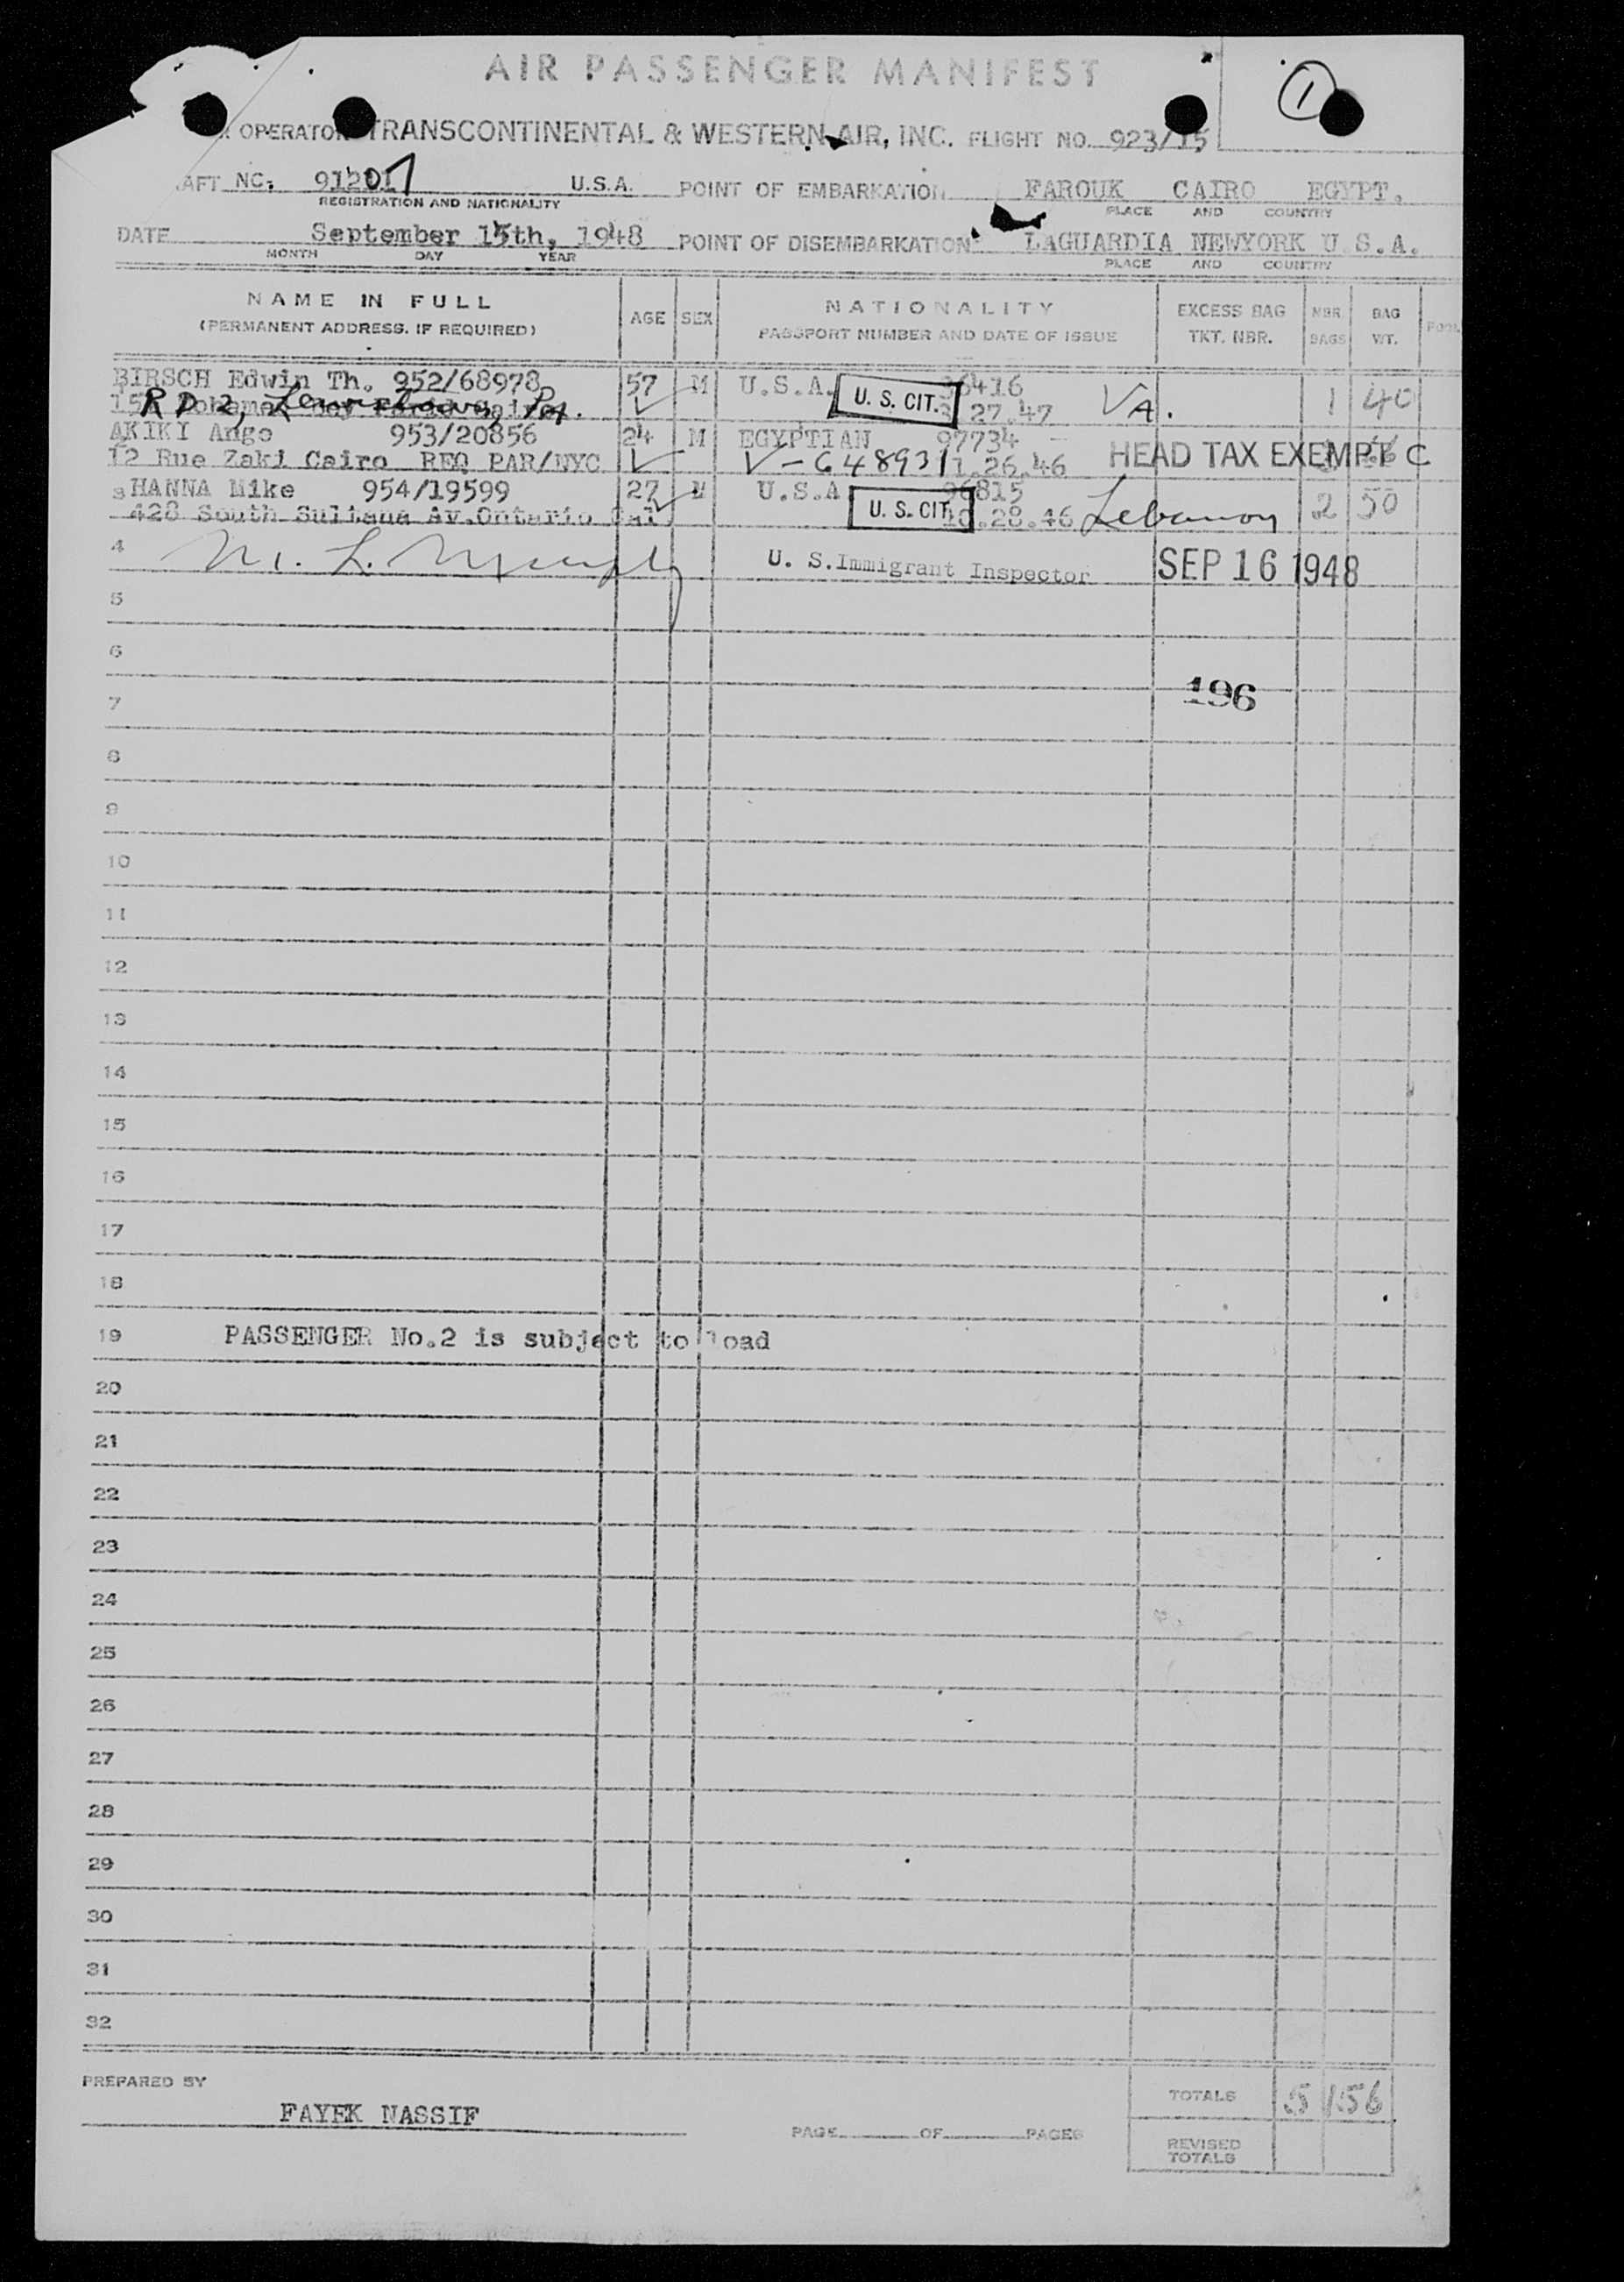 AIR PASSENGER MANIFEST
1
OPERATOR TRANSCONTINENTAL & WESTERN AIR, INC. FLIGHT NO. 923/15
AFT NO. 91201 U.S.A. POINT OF EMBARKATION FAROUK CAIRO EGYPT.
REGISTRATION AND NATIONALITY PLACE AND COUNTRY
DATE September 15th, 1948 POINT OF DISEMBARKATION LAGUARDIA NEWYORK U.S.A.
MONTH DAY YEAR PLACE AND COUNTRY
NAME IN FULL AGE SEX NATIONALITY EXCESS BAG NBR. BAG
(PERMANENT ADDRESS, IF REQUIRED) PASSPORT NUMBER AND DATE OF ISSUE TKT. NBR. BAGS WT.
BIRSCH Edwin Th. 952/68978 57 M U.S.A. U. S. CIT. 1 40
R D 2, Pa. 27.47 VA.
AKIKI Ange 953/20856 24 M EGYPTIAN 97734
12 Rue Zaki Cairo REQ PAR/NYC V-648931 1.26.46 HEAD TAX EXEMPT C
3 HANNA Mike 954/19599 27 M U.S.A. U. S. CIT. 96815 2 50
428 South Sultana Av.Ontario Cal 10.28.46 Lebanon
4 U. S.Immigrant Inspector SEP 16 1948
5
6
196
7
8
9
10
11
12
13
14
15
16
17
18
19 PASSENGER No.2 is subject to load
20
21
22
23
24
25
26
27
28
29
30
31
32
PREPARED BY
FAYEK NASSIF
PAGE OF PAGES
TOTALS 5 156
REVISED
TOTALS